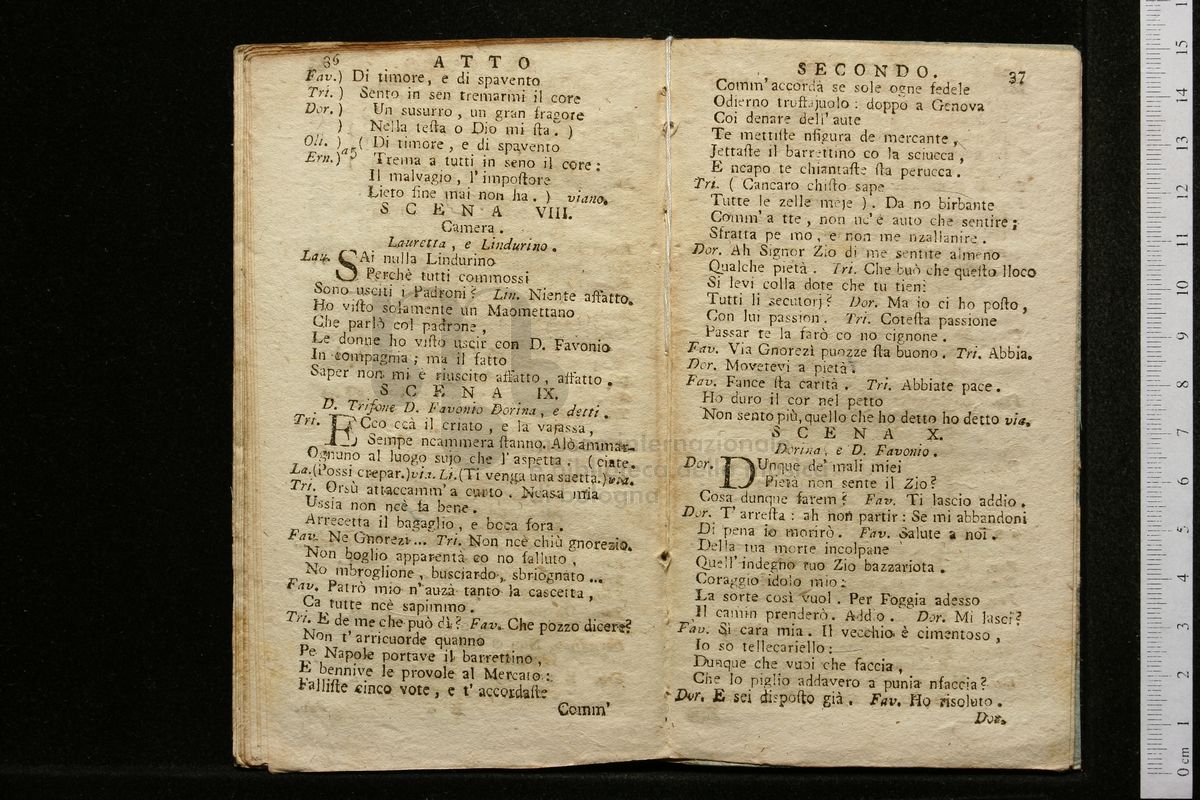 36 ATTO
Fav.) Di timore, e di spavento
Tri. ) Sento in sen tremarmi il core
Dor. ) Un susurro, un gran fragore
) Nella testa o Dio mi sta. )
Oli. ) ( Di timore, e di spavento
Ern.) a 5 Trema a tutti in seno il core:
Il malvagio, l'impostore
Lieto fine mai non ha. ) viano.
SCENA VIII.
Camera.
Lauretta, e Lindurino.
Lau. SAi nulla Lindurino
Perchè tutti commossi
Sono usciti i Padroni? Lin. Niente affatto.
Ho visto solamente un Maomettano
Che parlò col padrone,
Le donne ho visto uscir con D. Favonio
In compagnia; ma il fatto
Saper non mi è riuscito affatto, affatto.
SCENA IX.
D. Trifone D. Favonio Dorina, e detti.
Tri. ECco ccà il criato, e la vajassa,
Sempe ncammera stanno. Alò ammar-
Ognuno al luogo sujo che l'aspetta. (ciate.
La.(Possi crepar.)via. Li.(Ti venga una saetta.)via.
Tri. Orsù attaccamm'a curto. Ncasa mia
Ussia non ncè fa bene.
Arrecetta il bagaglio, e bcca fora.
Fav. Ne Gnorezi... Tri. Non ncè chiù gnorezio.
Non boglio apparentà co no falluto,
No mbroglione, busciardo, sbriognato...
Fav. Patrò mio n'auza tanto la cascetta,
Ca tutte ncè sapimmo.
Tri. E de me che può dì? Fav. Che pozzo dicere?
Non t'arricuorde quanno
Pe Napole portave il barrettino,
E bennive le provole al Mercato:
Falliste cinco vote, e t'accordaste
Comm'
SECONDO. 37
Comm'accorda se sole ogne fedele
Odierno truffajuolo: doppo a Genova
Coi denare dell'aute
Te mettiste nfigura de mercante,
Jettaste il barrettino co la sciucca,
E ncapo te chiantaste sta perucca.
Tri. ( Cancaro chisto sape
Tutte le zelle meje ). Da no birbante
Comm'a tte, non nc'è auto che sentire;
Sfratta pe mo, e non me nzallanire.
Dor. Ah Signor Zio di me sentite almeno
Qualche pietà. Tri. Che buò che questo lloco
Si levi colla dote che tu tieni
Tutti li secutorj? Dor. Ma io ci ho posto,
Con lui passion. Tri. Cotesta passione
Passar te la farò co no cignone.
Fav. Via Gnorezì puozze sta buono. Tri. Abbia.
Dor. Movetevi a pietà.
Fav. Fance sta carità. Tri. Abbiate pace.
Ho duro il cor nel petto
Non sento più, quello che ho detto ho detto via.
SCENA X.
Dorina, e D. Favonio.
Dor. DUnque de' mali miei
Pietà non sente il Zio?
Cosa dunque farem? Fav. Ti lascio addio.
Dor. T'arresta: ah non partir: Se mi abbandoni
Di pena io morirò. Fav. Salute a noi.
Della tua morte incolpane
Quell'indegno tuo Zio bazzariota.
Coraggio idolo mio:
La sorte così vuol. Per Foggia adesso
Il camin prenderò. Addio. Dor. Mi lasci?
Fav. Si cara mia. Il vecchio è cimentoso,
Io so tellecariello:
Dunque che vuoi che faccia,
Che lo piglio addavero a punia nfaccia?
Dor. E sei disposto già. Fav. Ho risoluto.
Dor.